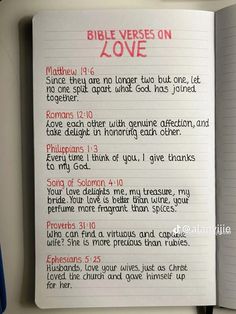 BIBLE VERSES ON
LOVE
Matthew 19:6
Since they are no longer two but one, let
no one split apart what God has joined
together.
Romans 12:10
Love each other with genuine affection, and
take delight in honoring each other.
Philippians 1:3
Every time I think of you, I give thanks
to my God.
Song of Solomon 4:10
Your love delights me, my treasure, my
bride. Your love is better than wine, your
perfume more fragrant than spices.
Proverbs 31:10
Who can find a virtuous and capable
wife? She is more precious than rubies.
Ephesians 5:25
Husbands, love your wives, just as Christ
loved the church and gave himself up
for her.